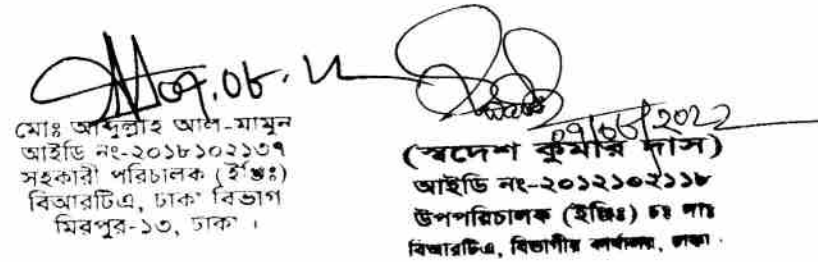 ০৭.০৮.২২
মোঃ আব্দুল্লাহ আল-মামুন
আইডি নং-২০১৮১০২১৩৭
সহকারী পরিচালক (ইঞ্জিঃ)
বিআরটিএ, ঢাকা বিভাগ
মিরপুর-১৩, ঢাকা ।
০৭/০৮/২০২২
(স্বদেশ কুমার দাস)
আইডি নং-২০১২১০২১১৮
উপপরিচালক (ইঞ্জিঃ) চঃ দাঃ
বিআরটিএ, বিভাগীয় কার্যালয়, ঢাকা.